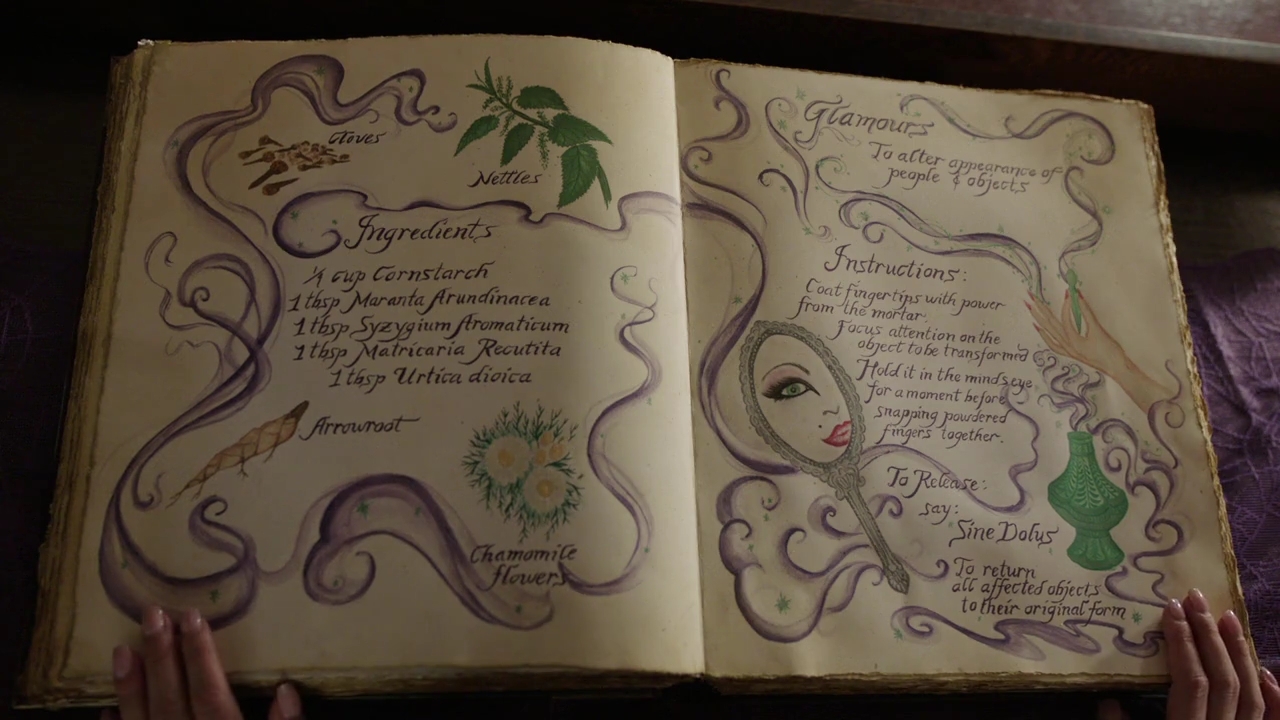 Cloves
Nettles
Ingredients
¼ cup Cornstarch
1 tbsp Maranta Arundinacea
1 tbsp Syzygium Aromaticum
1 tbsp Matricaria Recutita
1 tbsp Urtica dioica
Arrowroot
Chamomile
flowers
Glamours
To alter appearance of
people & objects
Instructions:
Coat fingertips with power
from the mortar.
Focus attention on the
object to be transformed
Hold it in the minds eye
for a moment before
snapping powdered
fingers together.
To Release:
say:
Sine Dolus
To return
all affected objects
to their original form